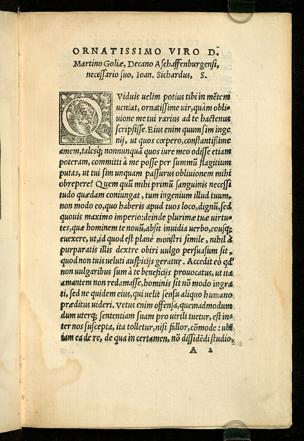 ORNATISSIMO VIRO D.
Martino Goliæ, Decano Aschaffenburgensi,
necessario suo, Ioan. Sichardus, S.
QViduis uelim potius tibi in mētem
ueniat, ornatissime uir, quàm obli
uione me tui rarius ad te hactenus
scripsisse. Eius enim quum sim inge
nij, ut quos cœpero, constantissimè
amem, talesq; nonnunquã quos iure meo odisse etiam
poteram, committi à me posse per summũ flagitium
putas, ut tui sim unquam passurus obliuionem mihi
obrepere? Quem quũ mihi primũ sanguinis necessi
tudo quædam coniungat, tum ingenium illud tuum,
non modo eo, quo haberis apud tuos loco, dignũ, sed
quouis maximo imperio: deinde plurimæ tuæ uirtu
tes, quæ hominem te nouũ, absit inuidia uerbo, eousq;
euexere, ut, id quod est planè monstri simile, nihil à
purpuratis illis dextre obiri uulgo persuasum sit,
quod non tuis ueluti auspicijs geratur. Accedit eò qd'
non uulgaribus sum à te beneficijs prouocatus, ut iã
amantem non redamasse, hominis sit nõ modo ingra
ti, sed ne quidem eius, qui uelit sensu aliquo humano
præditus uideri. uetus enim offensa, quemadmodum
dum uterq; sententiam suam pro uirili tuetur, est in
ter nos suscepta, ita tolletur, nisi fallor, cõmode: ubi
iam ea de re, de qua in certamen, nõ dissidēdi studio,
A 2